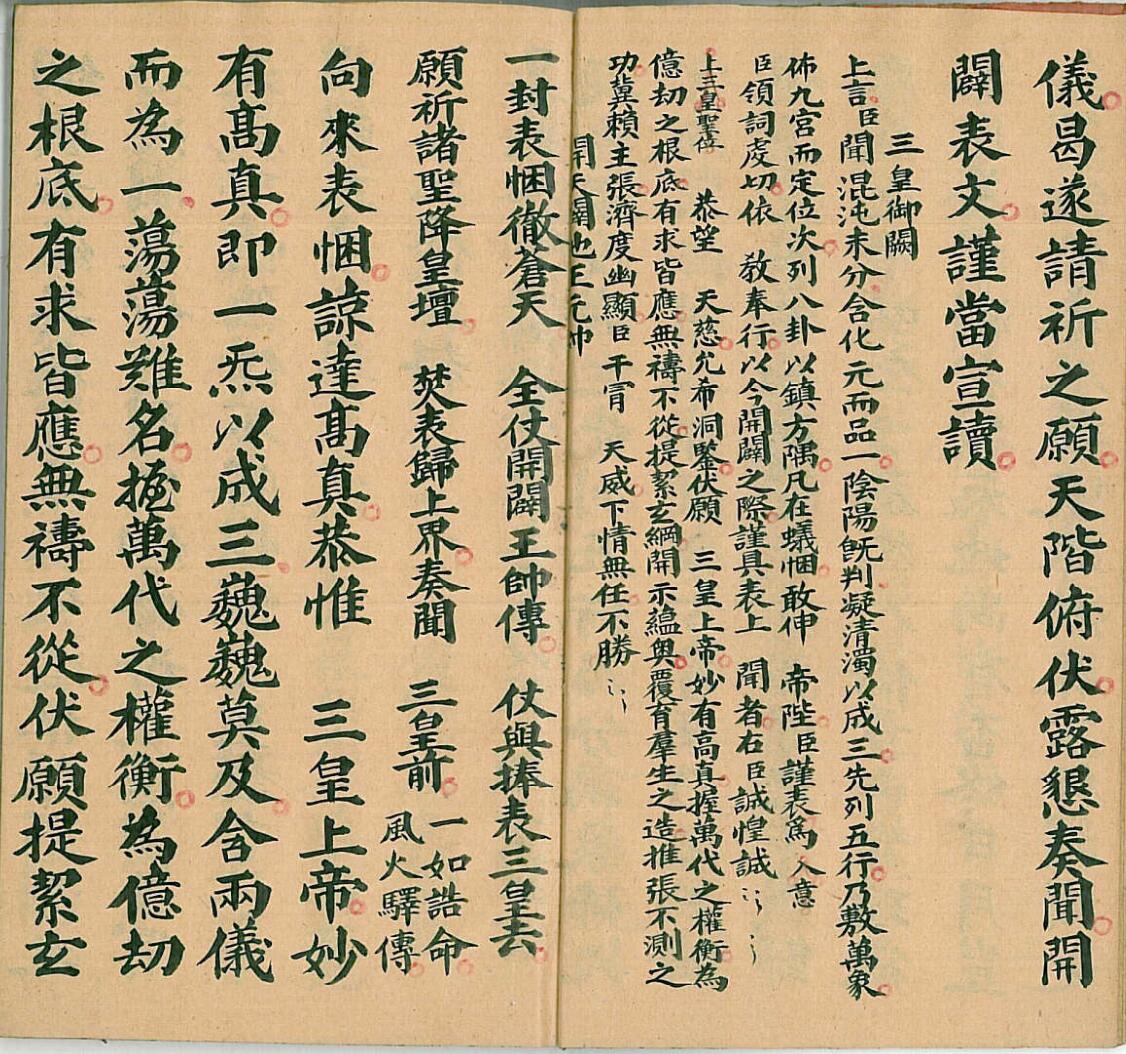 儀曷遂請祈之願天階俯伏露懇奏聞開
闢表文謹當宣讀
三皇御闕
上言臣聞混沌未分含化元而品一陰陽既判凝清濁以成三先列五行乃敷萬象
佈九宮而定位次列八卦以鎮方隅凡在蟻悃敢伸 帝陛臣謹表為 入意
臣領詞虔切依 教奉行以今開闢之際謹具表上 聞者右臣誠惶誠
上三皇聖 恭望 天慈允希洞鑒伏願 三皇上帝妙有高真握萬代之權衡為
億劫之根底有求皆應無禱不從提絜玄綱開示蘊奧覆育羣生之造推張不測之
功冀賴主張濟度幽顯臣干冒 天威下情無任不勝
開天闢地王元帅
一封表悃徹蒼天 全仗開闢王帥傳 仗與捧表三皇去
願祈諸聖降皇壇 焚表歸上界奏聞 三皇前 一如誥命
風火驛傳
向來表悃諒達高真恭惟 三皇上帝妙
有高真即一炁以成三巍巍莫及含兩儀
而為一蕩蕩難名握萬代之權衡為億劫
之根底有求皆應無禱不從伏願提絜玄